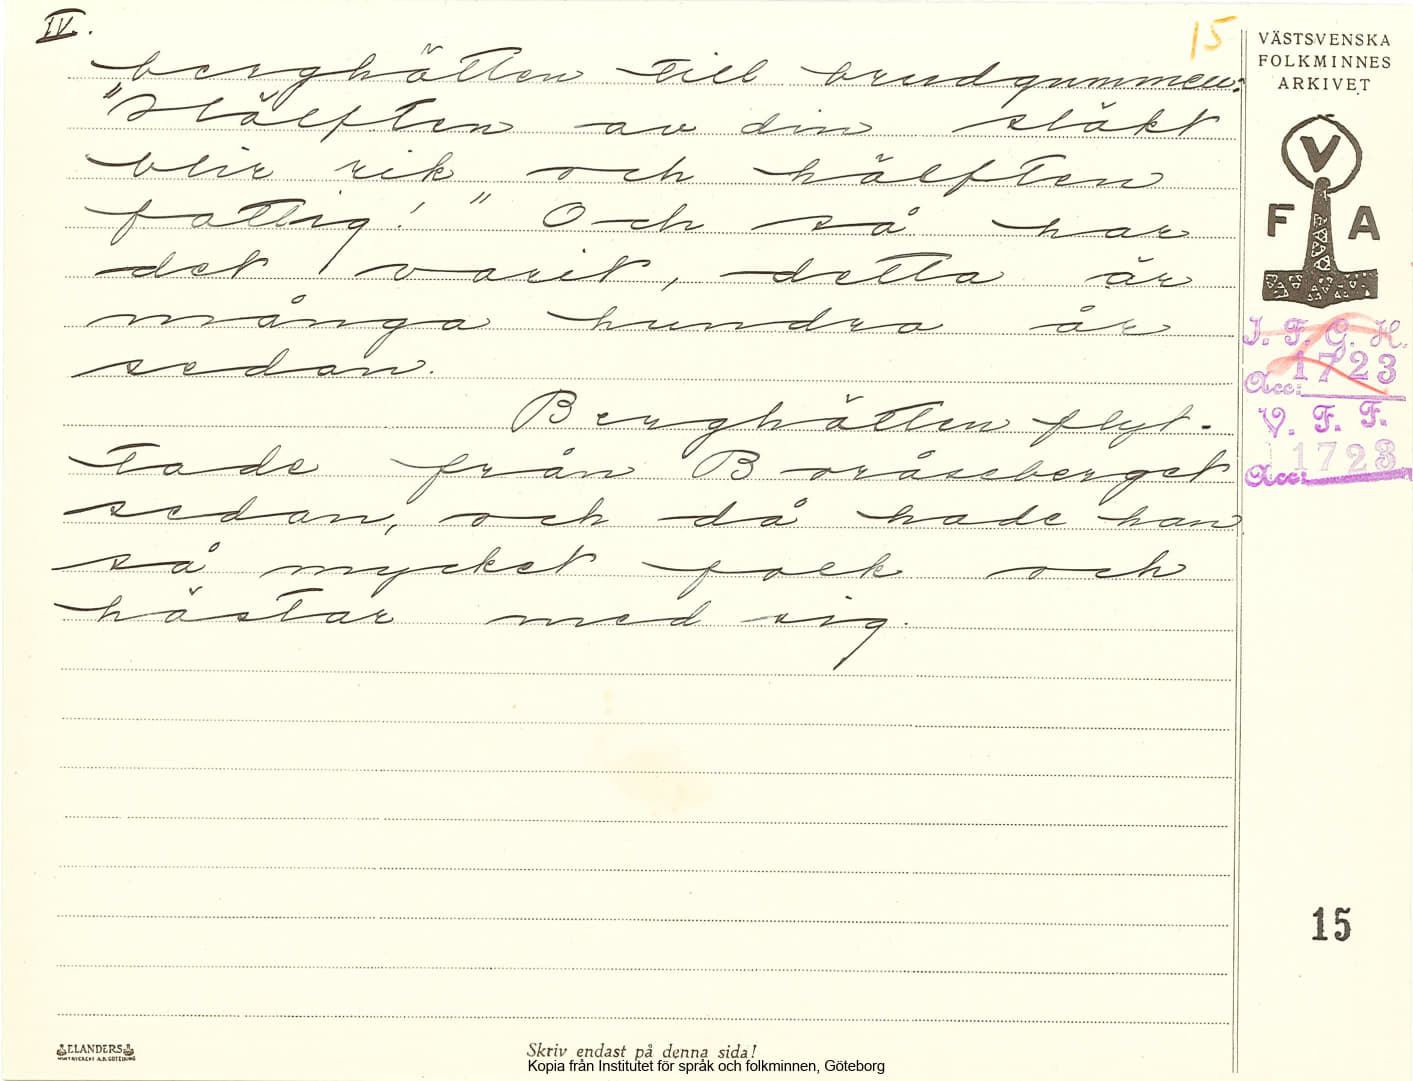 IV.
15
berghätten till brudgummen:
"Hälften av din släkt
blir rik och hälften
fattig!" Och så har
det varit, detta är
många hundra år
sedan.
Berghätten flyt-
tade från Boråseberget
sedan, och då hade han
så mycket folk och
hästar med sig.
VÄSTSVENSKA
FOLKMINNES
ARKIVET
V
F A
I. F. G. H.
Acc: 1723
V. F. F.
Acc: 1723
15
ELANDERS
Skriv endast på denna sida!
Kopia från Institutet för språk och folkminnen, Göteborg